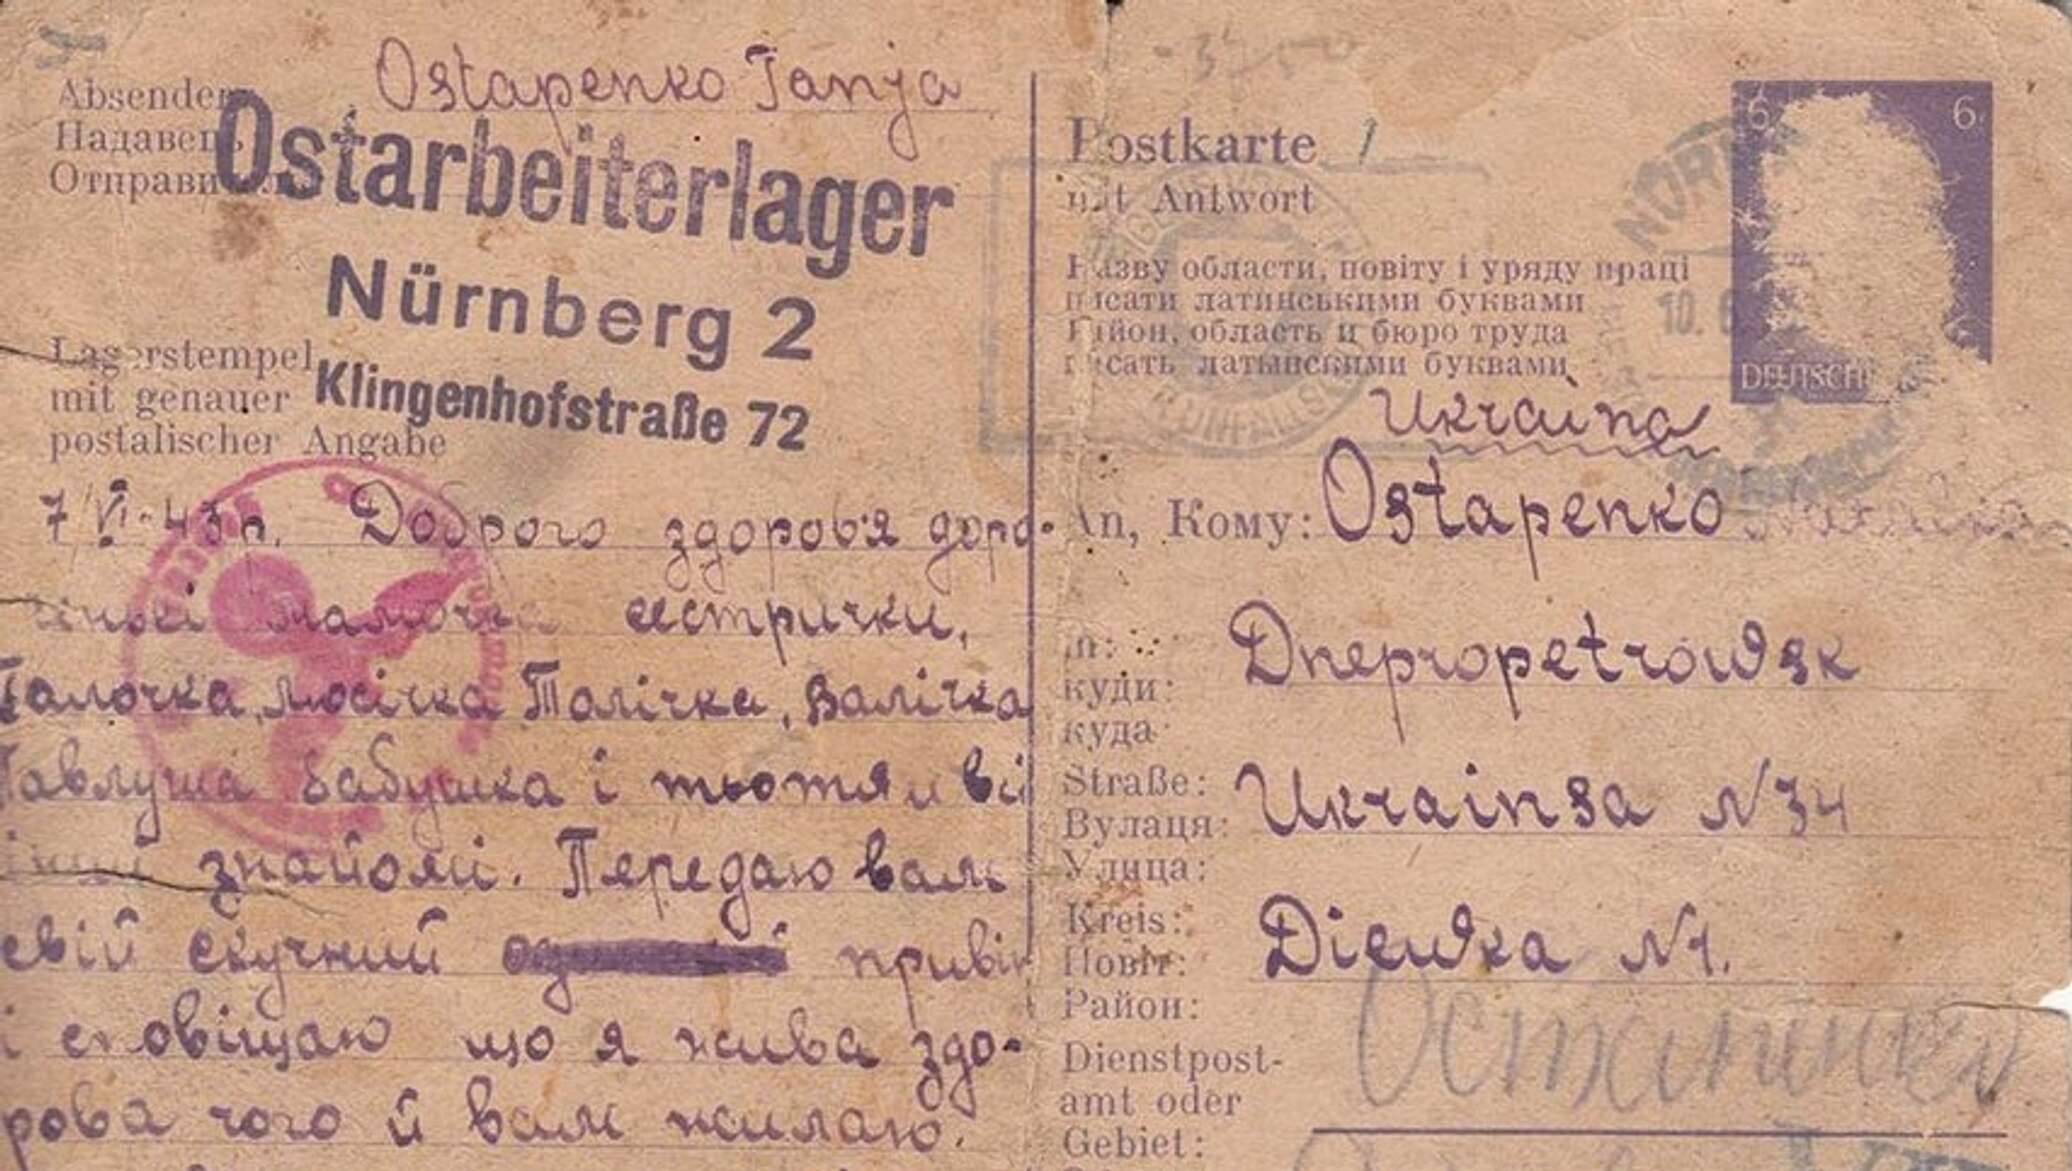 Absender
Надавець
Ostapenko Tanja
Ostarbeiterlager
Nürnberg 2
Klingenhofstraße 72
Lagerstempel
mit genauer
postalischer Angabe
7 VI-43р. Доброго здоров'я доро-
мамочка сестрички,
Галочка, Люсічка Толічка, Валічка
Павлуша бабушка і тьотя и всі
знайомі. Передаю вам
свій скучний привіт
і сповіщаю що я жива здо-
рова чого й вам жилаю.
Postkarte 1
mit Antwort
Назву области, повіту і уряду праці
писати латинськими буквами
Район, область и бюро труда
писать латынскими буквами
6 6
DEUTSCH
10. 6
Ukraina
An, Кому: Ostapenko
In: Dnepropetrowsk
куди:
куда
Straße: Ukrainsa N 34
Вулаця:
Улица:
Kreis: Diewka N1.
Повіт:
Район:
Dienstpost-
amt oder
Gebiet: